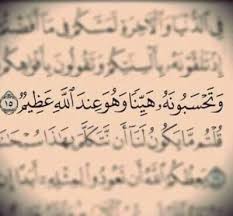 فِي الدُّنْيَا وَالْآخِرَةِ لَمَسَّكُمْ فِي مَا أَفَضْتُمْ
إِذْ تَلَقَّوْنَهُ بِأَلْسِنَتِكُمْ وَتَقُولُونَ بِأَفْوَاهِكُم
وَتَحْسَبُونَهُ هَيِّنًا وَهُوَ عِندَ اللَّهِ عَظِيمٌ ١٥
قُلْتُم مَّا يَكُونُ لَنَا أَن نَّتَكَلَّمَ بِهَذَا
يَعِظُكُمُ اللَّهُ أَن تَعُودُوا لِمِثْلِهِ أَبَدًا